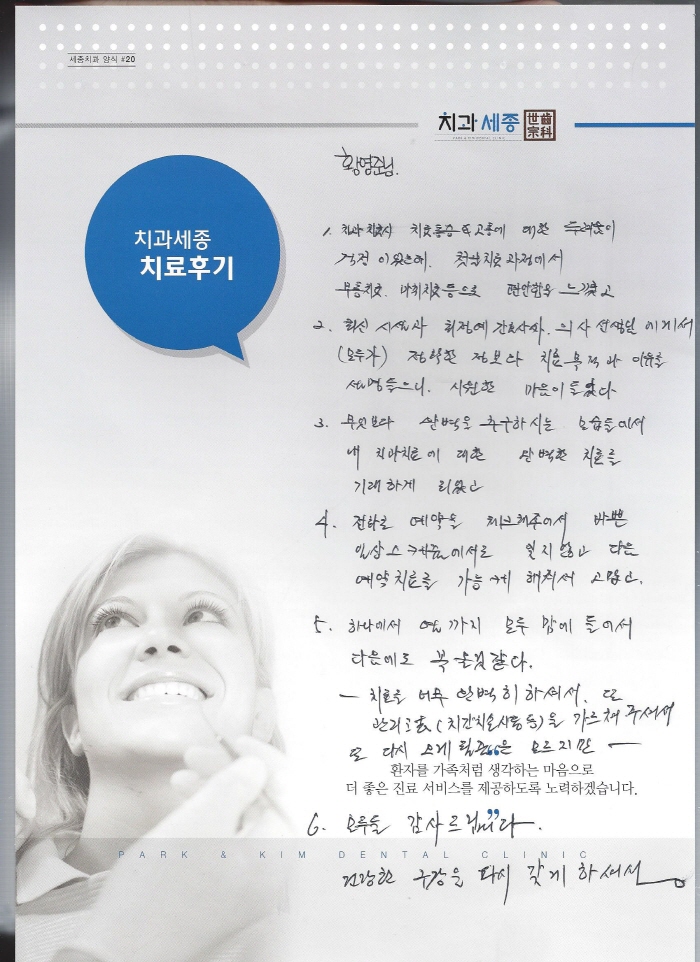 세종치과 양식 #20
치과세종 世宗齒科
황영준님.
치과세종
치료후기
1. 치과 치료시 치료통증 및 고통에 대한 두려움이
걱정 이었는데. 첫날치료 과정에서
무통치료. 마취치료등으로 편안함을 느끼었고
2. 최신 시설과 최정예 간호사와. 의사 선생님 에게서
(모두가) 정확한 정보와 치료 목적과 이유를
설명들으니. 시원한 마음이 들었다
3. 무엇보다 완벽을 추구하시는 모습들에서
내 치과치료에 대한 완벽한 치료를
기대하게 되었고
4. 전화로 예약을 체크해주어서 바쁜
일상 에서도 잊지 않고 다음
예약치료를 가능케 해줘서 고맙고.
5. 하나에서 열까지 모두 맘에 들어서
다음에도 꼭 올것 같다.
— 치료를 너무 완벽히 하셔서. 또
관리 (치간치솔사용 등)을 가르쳐 주셔서
또 다시 오게 될 은 모르지만 —
환자를 가족처럼 생각하는 마음으로
더 좋은 진료 서비스를 제공하도록 노력하겠습니다.
6. 모두들 감사드립니다.
PARK & KIM DENTAL CLINIC
건강한 구강을 다시 갖게 하셔서